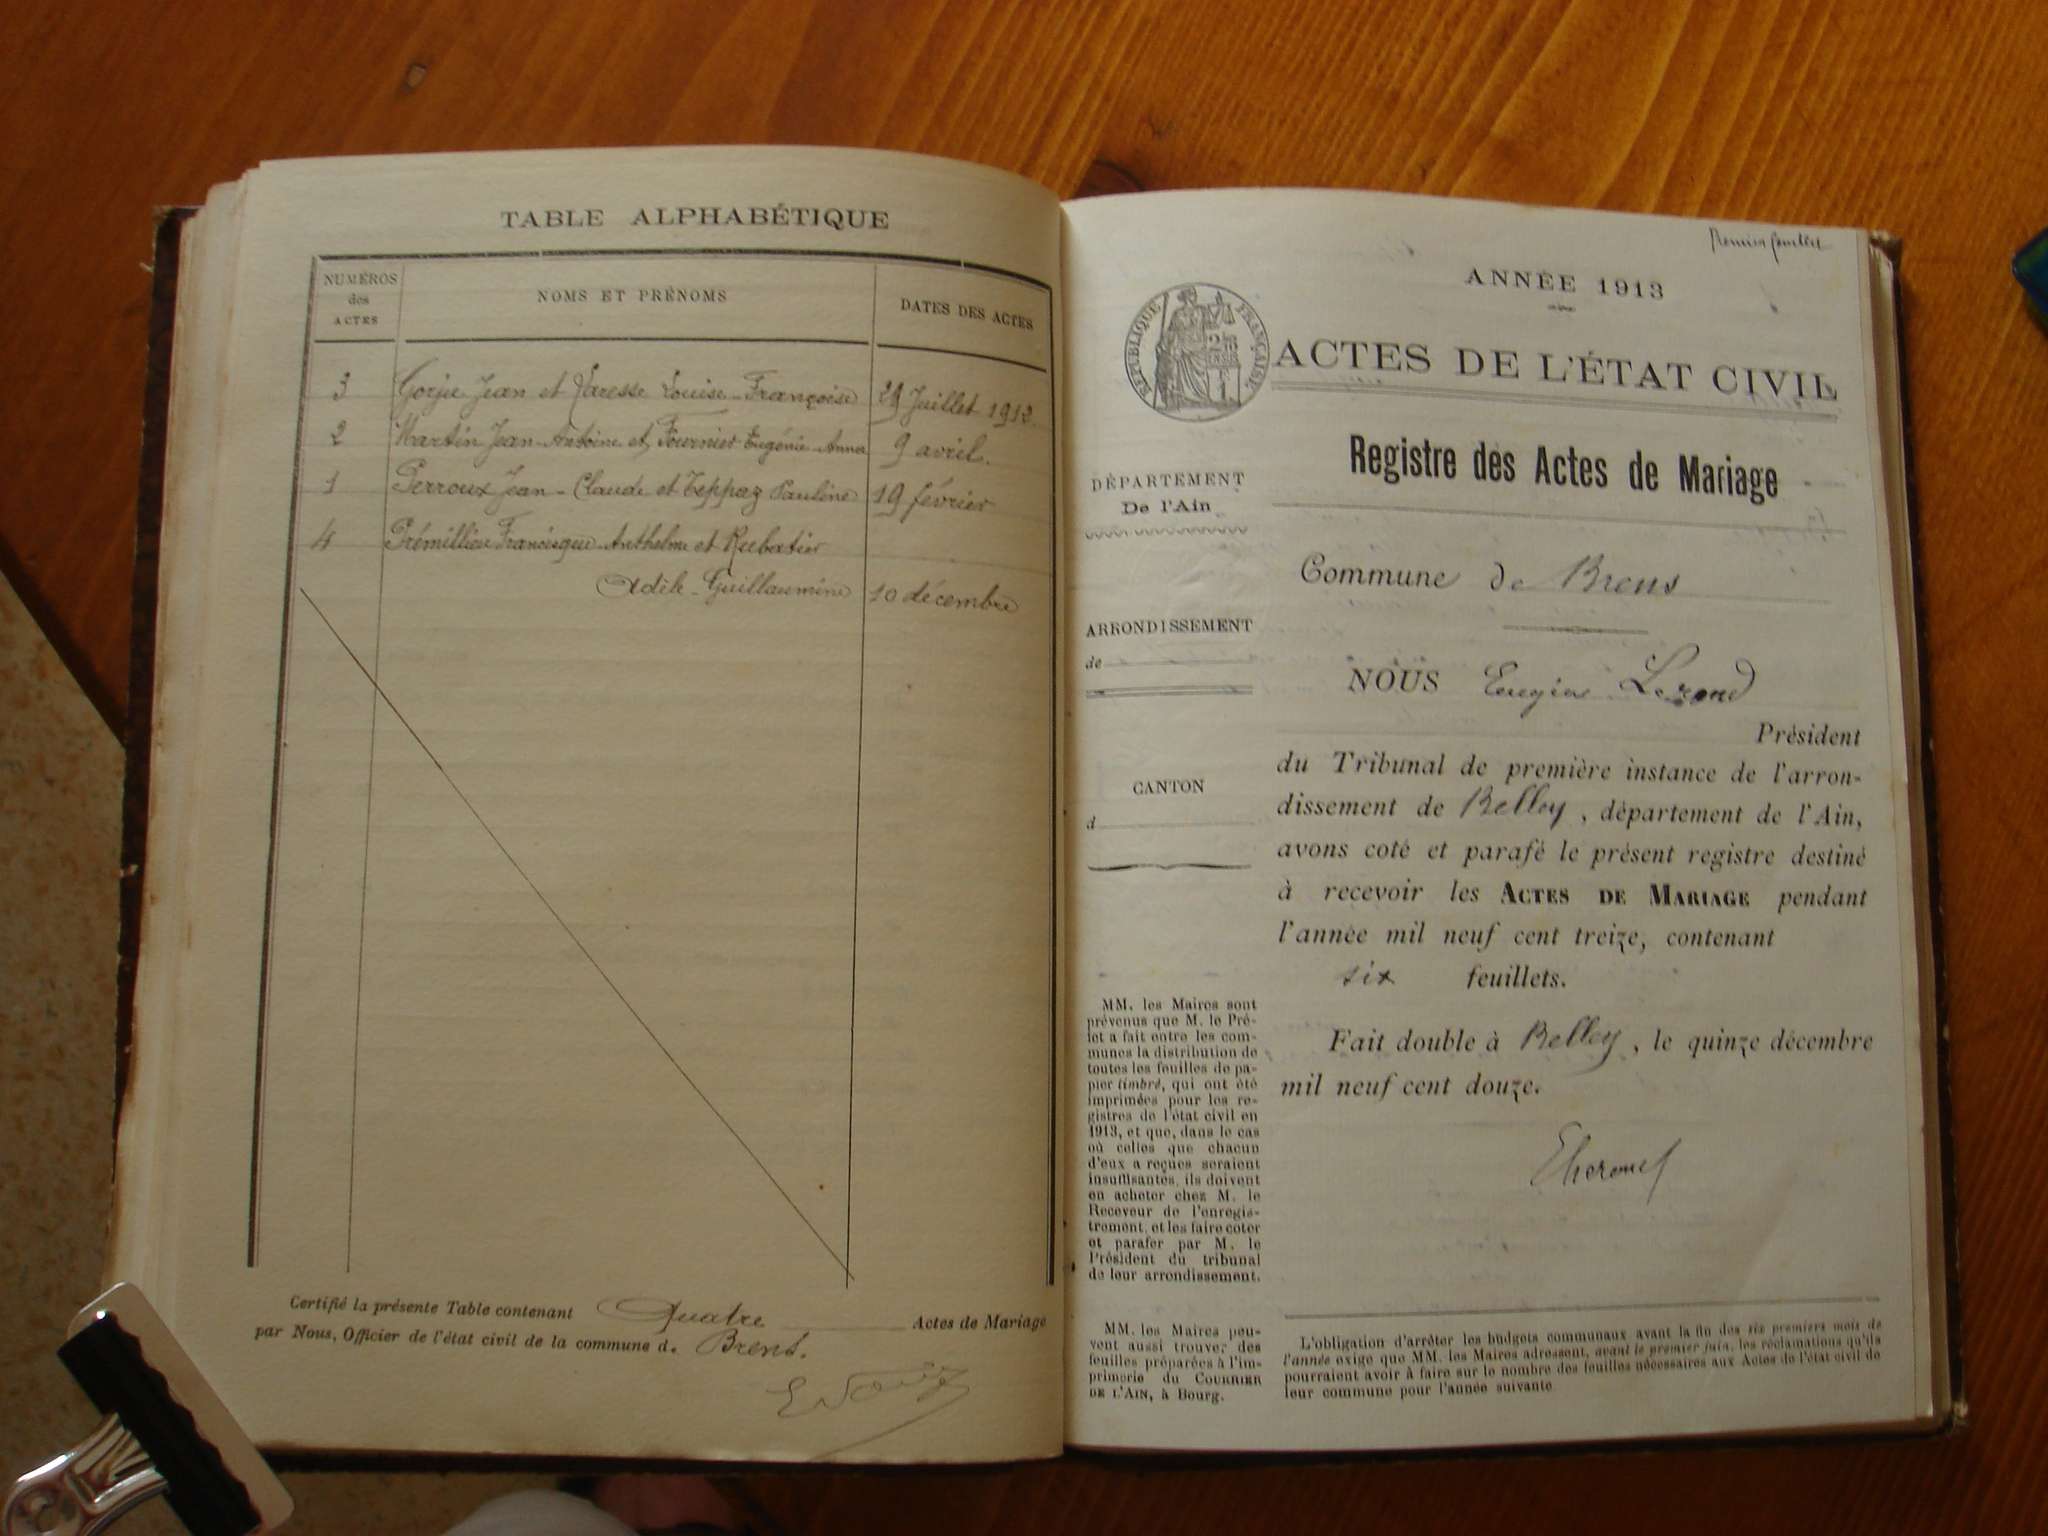 TABLE ALPHABÉTIQUE
NUMÉROS des ACTES
NOMS ET PRÉNOMS
DATES DES ACTES
3 Gorju Jean et Varesse Louise-Françoise 29 Juillet 1912.
2 Martin Jean-Antoine et Fournier Eugénie-Anna 9 avril.
1 Perroux Jean-Claude et Teppaz Pauline 19 février
4 Prémillieu Francisque-Anthelme et Rubatier
Adèle-Guillaumine 10 décembre
Certifié la présente Table contenant Quatre Actes de Mariage
par Nous, Officier de l'état civil de la commune d. Brens.
Premier feuillet
ANNÉE 1913
RÉPUBLIQUE FRANÇAISE
ACTES DE L'ÉTAT CIVIL
Registre des Actes de Mariage
DÉPARTEMENT
De l'Ain
Commune de Brens
ARRONDISSEMENT
de
CANTON
d
NOUS Eugène
Président
du Tribunal de première instance de l'arron-
dissement de Belley, département de l'Ain,
avons coté et parafé le présent registre destiné
à recevoir les ACTES DE MARIAGE pendant
l'année mil neuf cent treize, contenant
six feuillets.
Fait double à Belley, le quinze décembre
mil neuf cent douze.
MM. les Maires sont
prévenus que M. le Pré-
fet a fait entre les com-
munes la distribution de
toutes les feuilles de pa-
pier timbré, qui ont été
imprimées pour les re-
gistres de l'état civil en
1913, et que, dans le cas
où celles que chacun
d'eux a reçues seraient
insuffisantes, ils doivent
en acheter chez M. le
Receveur de l'enregis-
trement, et les faire coter
et parafer par M. le
Président du tribunal
de leur arrondissement.
MM. les Maires peu-
vent aussi trouver des
feuilles préparées à l'im-
primerie du COURRIER
DE L'AIN, à Bourg.
L'obligation d'arrêter les budgets communaux avant la fin des six premiers mois de
l'année exige que MM. les Maires adressent, avant le premier juin, les réclamations qu'ils
pourraient avoir à faire sur le nombre des feuilles nécessaires aux Actes de l'état civil de
leur commune pour l'année suivante